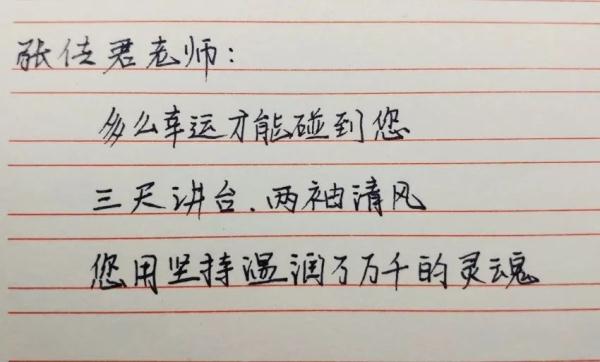 张佳君老师:
多么幸运才能碰到您
三尺讲台.两袖清风
您用坚持温润万万千的灵魂